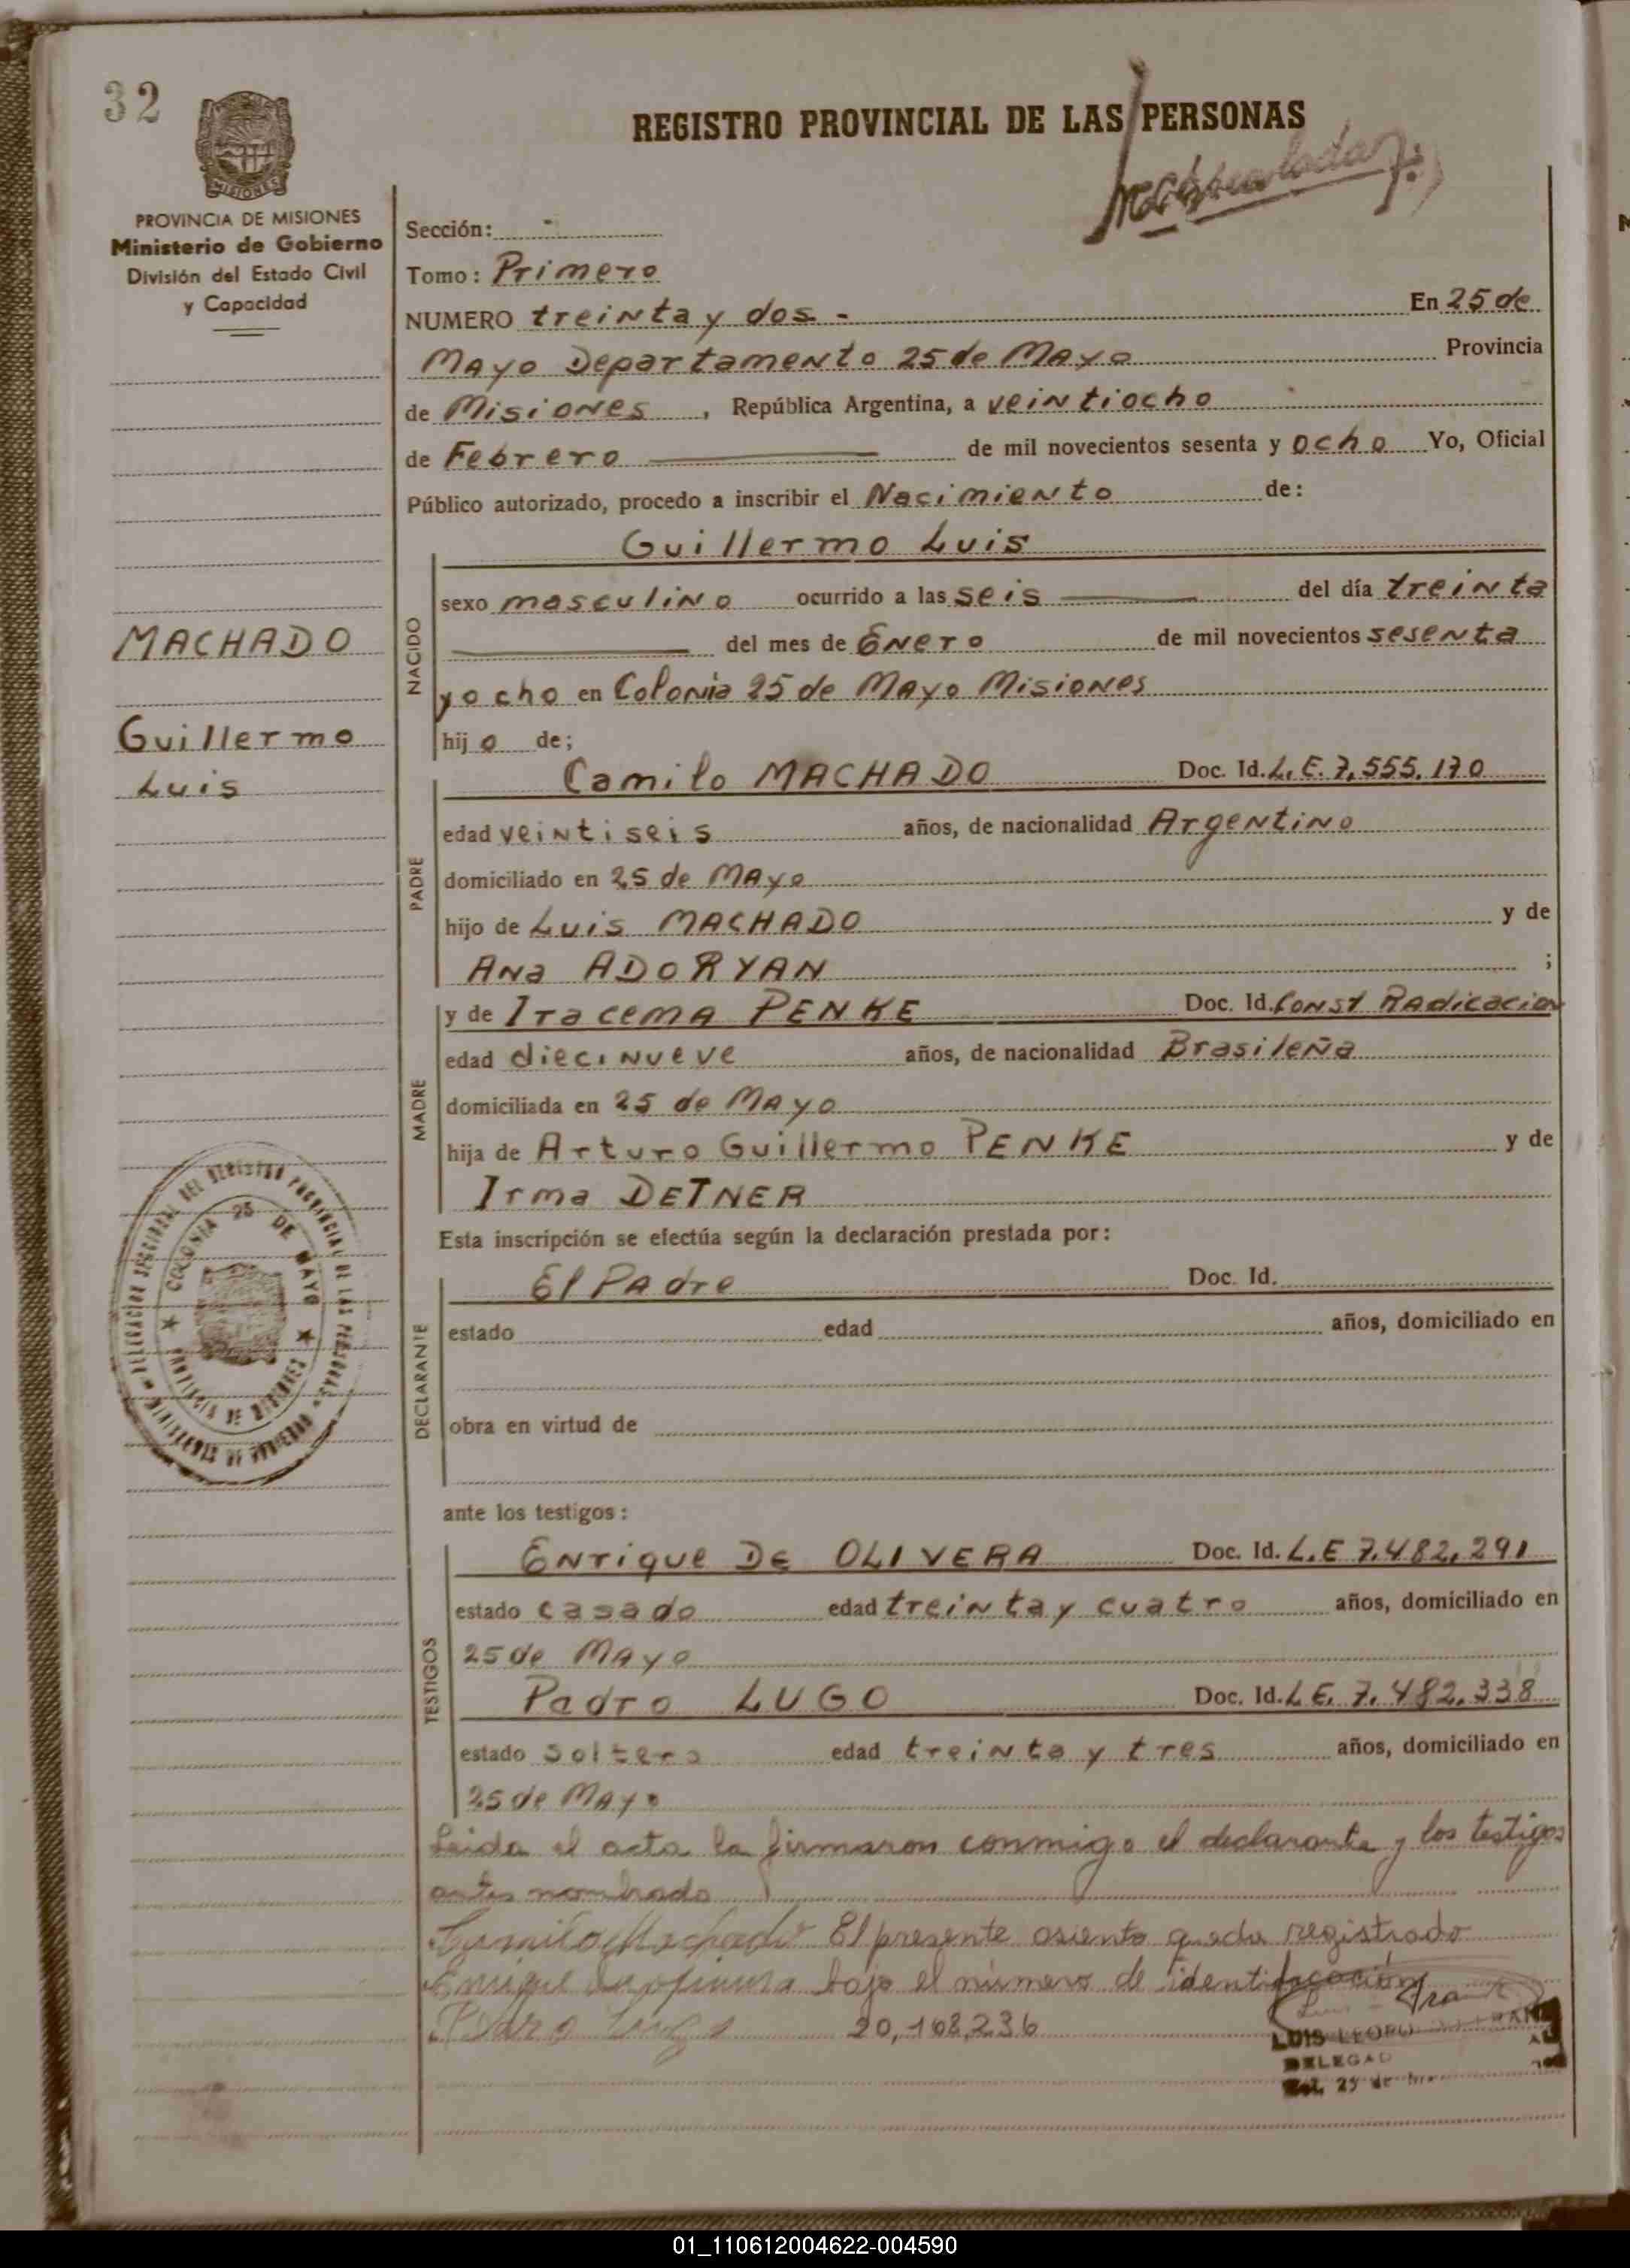 32
REGISTRO PROVINCIAL DE LAS PERSONAS
MISIONES
PROVINCIA DE MISIONES
Ministerio de Gobierno
División del Estado Civil
y Capacidad
Sección: -
Tomo: Primero
NUMERO treinta y dos - En 25 de
Mayo Departamento 25 de Mayo Provincia
de Misiones, República Argentina, a veintiocho
de Febrero de mil novecientos sesenta y ocho Yo, Oficial
Público autorizado, procedo a inscribir el Nacimiento de:
Guillermo Luis
NACIDO
sexo masculino ocurrido a las seis del día treinta
del mes de Enero de mil novecientos sesenta
y ocho en Colonia 25 de Mayo Misiones
hijo de;
MACHADO
Guillermo
Luis
PADRE
Camilo MACHADO Doc. Id. L.E. 7,555.170
edad veintiseis años, de nacionalidad Argentino
domiciliado en 25 de Mayo
hijo de Luis MACHADO y de
Ana ADORYAN ;
MADRE
y de Iracema PENKE Doc. Id. Const Radicacion
edad diecinueve años, de nacionalidad Brasileña
domiciliada en 25 de Mayo
hija de Arturo Guillermo PENKE y de
Irma DETNER
Esta inscripción se efectúa según la declaración prestada por:
DECLARANTE
El Padre Doc. Id.
estado edad años, domiciliado en
obra en virtud de
COLONIA 25 DE MAYO
PROVINCIA DE MISIONES
MINISTERIO DE GOBIERNO
ante los testigos:
TESTIGOS
Enrique DE OLIVERA Doc. Id. L.E 7.482,291
estado casado edad treinta y cuatro años, domiciliado en
25 de Mayo
Pedro LUGO Doc. Id. L E. 7.482.338
estado soltero edad treinta y tres años, domiciliado en
25 de Mayo
Leida el acta la firmaron conmigo el declarante y los testigos
antes nombrado
Camilo Machado El presente asiento queda registrado
Enrique bajo el número de identificación
Pedro Lugo 20,168,236
LUIS LEOPO
DELEGAD
Col. 25 de
01_110612004622-004590